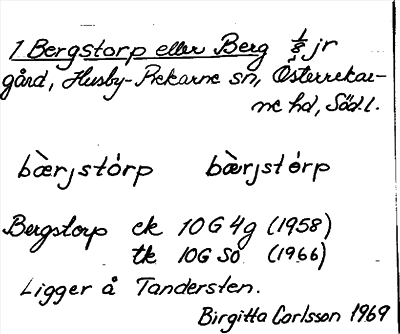 1 Bergstorp eller Berg 1/8 jr
gård, Husby-Rekarne sn, Österrekar-
ne hd, Söd.l.
bæ̀rjstórp bæ̀rjstórp
Bergstorp ek 10G4g (1958)
tk 10G SO (1966)
Ligger å Tandersten.
Birgitta Carlsson 1969